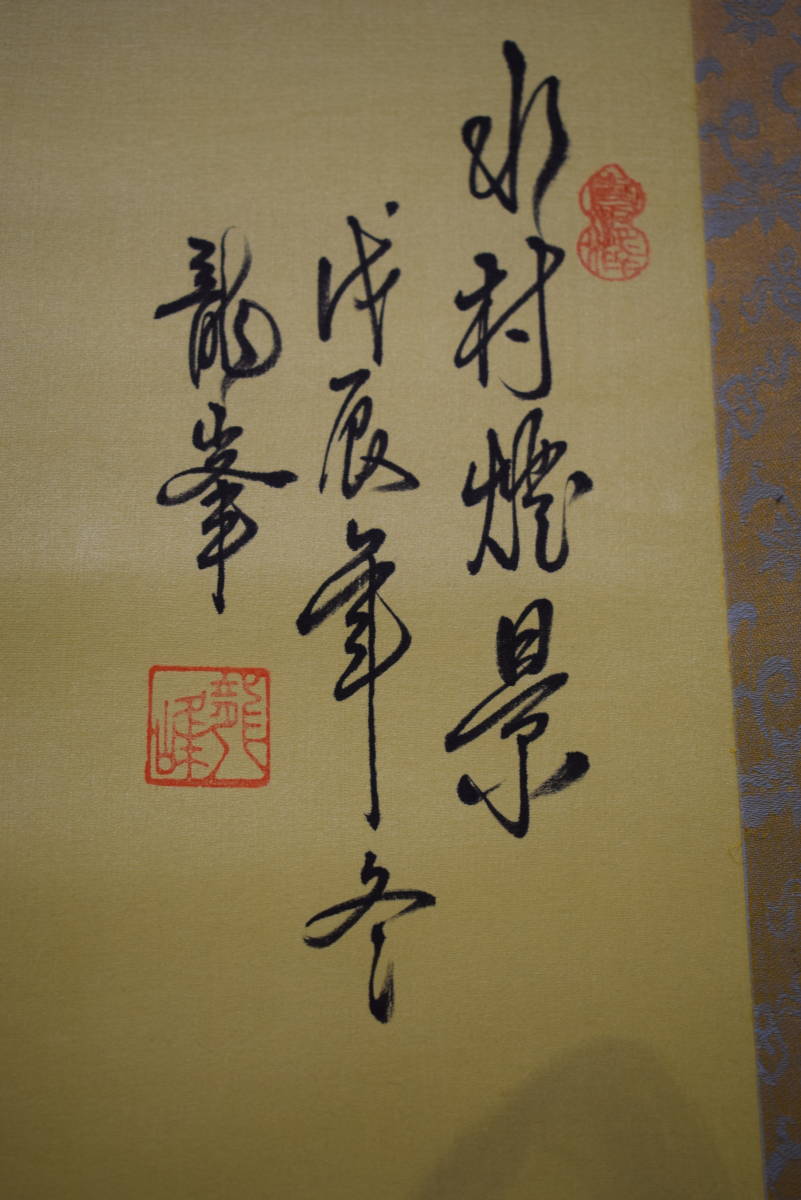 水村烟景
戊辰年冬
龍峯
龍峰